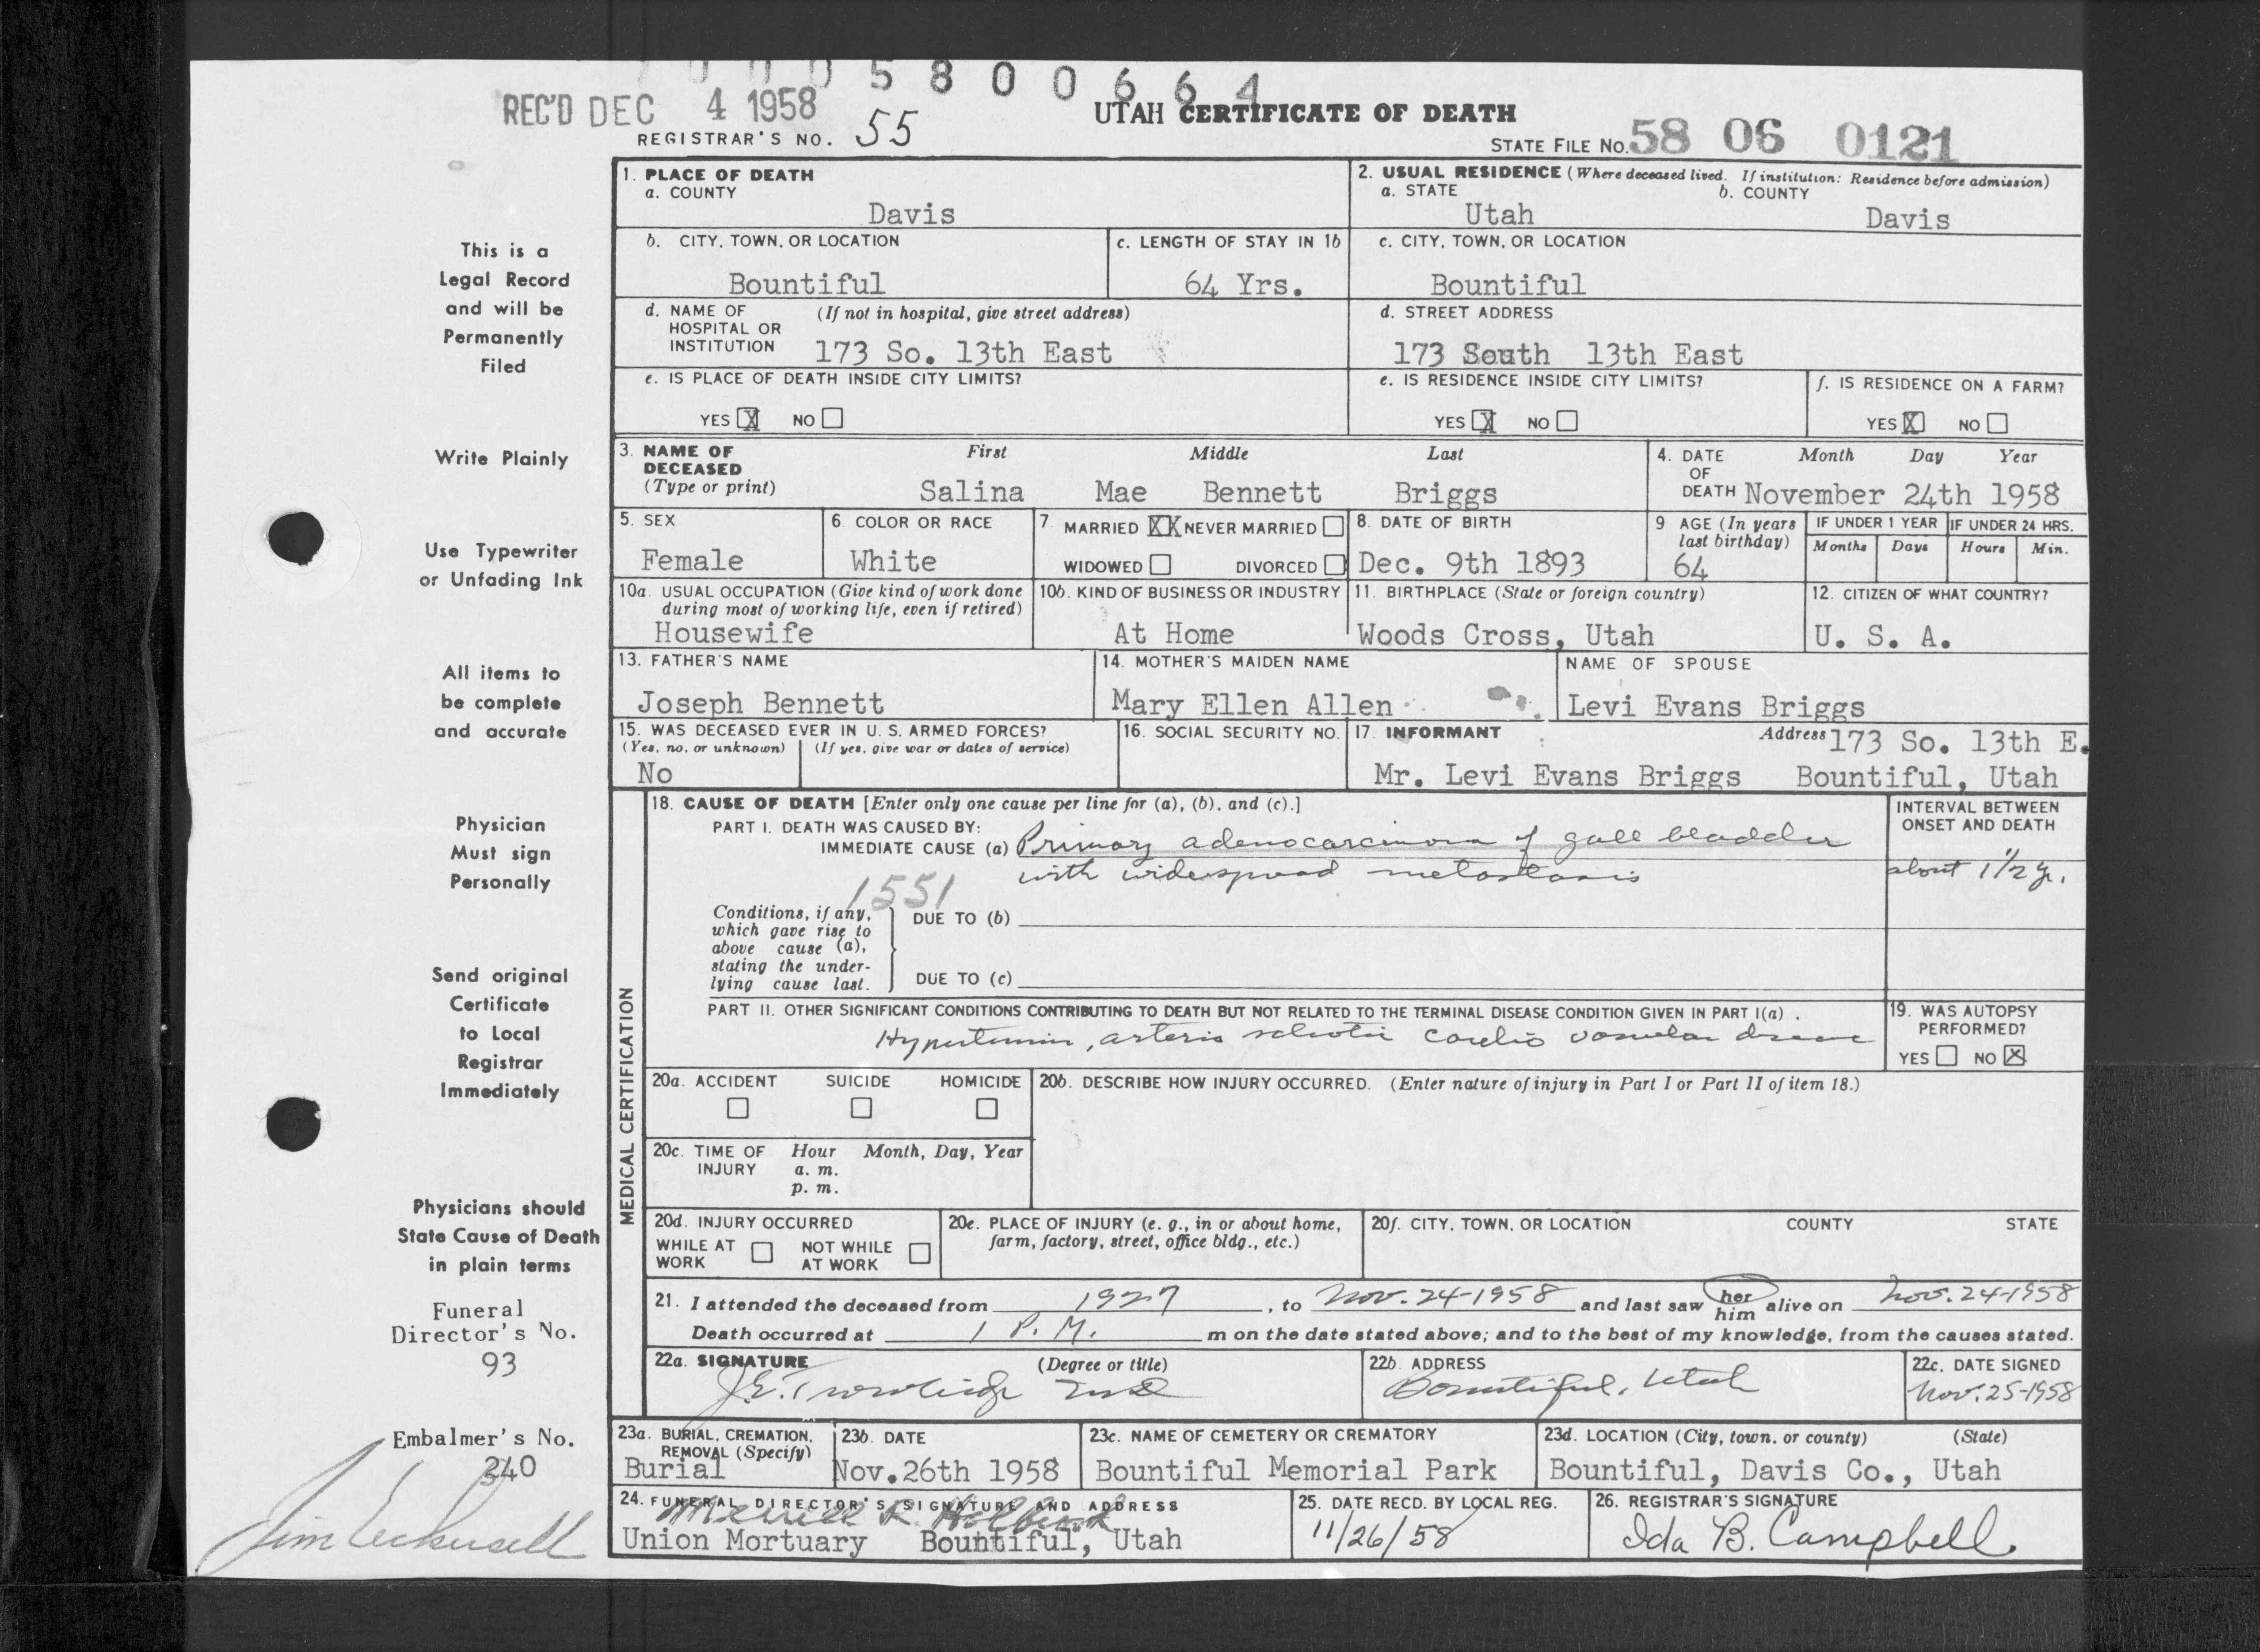 5 8 0 0 6 6 4
REC'D DEC 4 1958
UTAH CERTIFICATE OF DEATH
REGISTRAR'S NO. 55
STATE FILE NO. 58 06 0121
This is a
Legal Record
and will be
Permanently
Filed
Write Plainly
Use Typewriter
or Unfading Ink
All items to
be complete
and accurate
Physician
Must sign
Personally
Send original
Certificate
to Local
Registrar
Immediately
Physicians should
State Cause of Death
in plain terms
Funeral
Director's No.
93
Embalmer's No.
240
Jim
1. PLACE OF DEATH
a. COUNTY
Davis
2. USUAL RESIDENCE (Where deceased lived. If institution: Residence before admission)
a. STATE b. COUNTY
Utah Davis
b. CITY, TOWN, OR LOCATION
Bountiful
c. LENGTH OF STAY IN 1b
64 Yrs.
c. CITY, TOWN, OR LOCATION
Bountiful
d. NAME OF (If not in hospital, give street address)
HOSPITAL OR
INSTITUTION 173 So. 13th East
d. STREET ADDRESS
173 South 13th East
e. IS PLACE OF DEATH INSIDE CITY LIMITS?
YES X NO
e. IS RESIDENCE INSIDE CITY LIMITS?
YES X NO
f. IS RESIDENCE ON A FARM?
YES X NO
3. NAME OF First Middle Last
DECEASED
(Type or print) Salina Mae Bennett Briggs
4. DATE Month Day Year
OF
DEATH November 24th 1958
5. SEX
Female
6. COLOR OR RACE
White
7. MARRIED XX NEVER MARRIED
WIDOWED DIVORCED
8. DATE OF BIRTH
Dec. 9th 1893
9 AGE (In years
last birthday)
64
IF UNDER 1 YEAR IF UNDER 24 HRS.
Months Days Hours Min.
10a. USUAL OCCUPATION (Give kind of work done
during most of working life, even if retired)
Housewife
10b. KIND OF BUSINESS OR INDUSTRY
At Home
11. BIRTHPLACE (State or foreign country)
Woods Cross, Utah
12. CITIZEN OF WHAT COUNTRY?
U. S. A.
13. FATHER'S NAME
Joseph Bennett
14. MOTHER'S MAIDEN NAME
Mary Ellen Allen
NAME OF SPOUSE
Levi Evans Briggs
15. WAS DECEASED EVER IN U. S. ARMED FORCES?
(Yes, no, or unknown) (If yes, give war or dates of service)
No
16. SOCIAL SECURITY NO.
17. INFORMANT Address 173 So. 13th E.
Mr. Levi Evans Briggs Bountiful, Utah
MEDICAL CERTIFICATION
18. CAUSE OF DEATH [Enter only one cause per line for (a), (b), and (c).]
PART I. DEATH WAS CAUSED BY:
IMMEDIATE CAUSE (a) Primary adenocarcinoma of gall bladder
with widespread metastasis
INTERVAL BETWEEN
ONSET AND DEATH
about 1 1/2 yr.
1551
Conditions, if any,
which gave rise to
above cause (a),
stating the under-
lying cause last.
DUE TO (b)
DUE TO (c)
PART II. OTHER SIGNIFICANT CONDITIONS CONTRIBUTING TO DEATH BUT NOT RELATED TO THE TERMINAL DISEASE CONDITION GIVEN IN PART I(a).
Hypertension, arterio sclerotic cardio vascular disease
19. WAS AUTOPSY
PERFORMED?
YES NO X
20a. ACCIDENT SUICIDE HOMICIDE
20b. DESCRIBE HOW INJURY OCCURRED. (Enter nature of injury in Part I or Part II of item 18.)
20c. TIME OF Hour Month, Day, Year
INJURY a. m.
p. m.
20d. INJURY OCCURRED
WHILE AT NOT WHILE
WORK AT WORK
20e. PLACE OF INJURY (e. g., in or about home,
farm, factory, street, office bldg., etc.)
20f. CITY, TOWN, OR LOCATION COUNTY STATE
21. I attended the deceased from 1927, to Nov. 24-1958 and last saw her him alive on Nov. 24-1958
Death occurred at 1 P. M. m on the date stated above; and to the best of my knowledge, from the causes stated.
22a. SIGNATURE (Degree or title)
J. E. Trowbridge MD
22b. ADDRESS
Bountiful, Utah
22c. DATE SIGNED
Nov. 25-1958
23a. BURIAL, CREMATION,
REMOVAL (Specify)
Burial
23b. DATE
Nov. 26th 1958
23c. NAME OF CEMETERY OR CREMATORY
Bountiful Memorial Park
23d. LOCATION (City, town, or county) (State)
Bountiful, Davis Co., Utah
24. FUNERAL DIRECTOR'S SIGNATURE AND ADDRESS
Merrill R. Holbrook
Union Mortuary Bountiful, Utah
25. DATE RECD. BY LOCAL REG.
11/26/58
26. REGISTRAR'S SIGNATURE
Ida B. Campbell